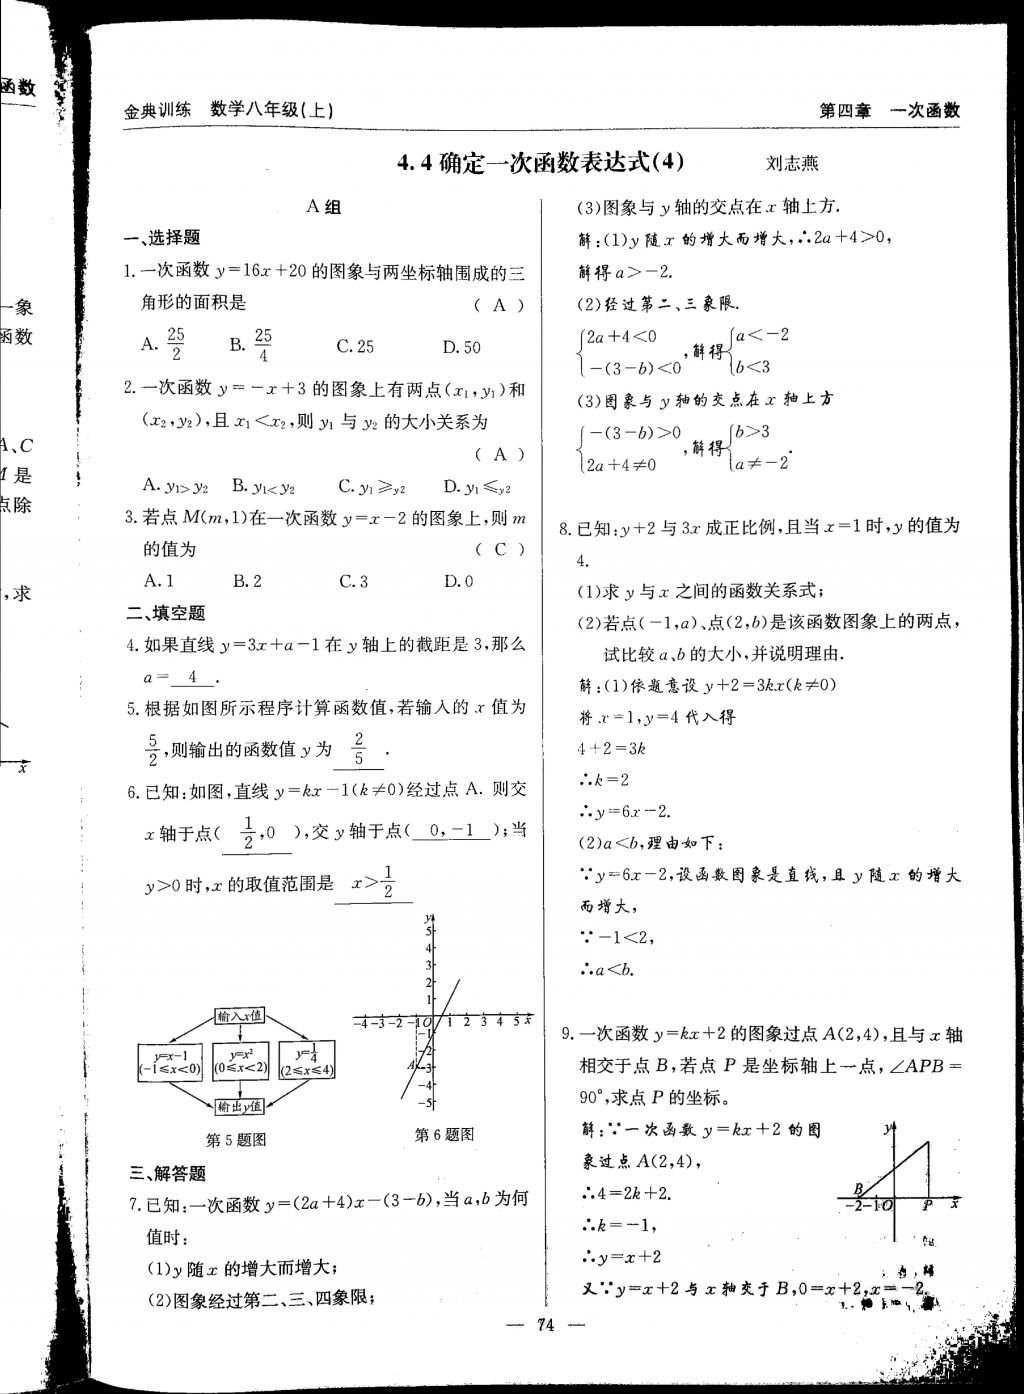 函数
一象
函数
A、C
M 是
点除
,求
x
金典训练 数学八年级(上)
第四章 一次函数
4.4 确定一次函数表达式(4) 刘志燕
A 组
一、选择题
1.一次函数 y=16x+20 的图象与两坐标轴围成的三
角形的面积是 ( A )
A. 25/2 B. 25/4 C. 25 D. 50
2.一次函数 y=-x+3 的图象上有两点(x₁,y₁)和
(x₂,y₂),且 x₁<x₂,则 y₁ 与 y₂ 的大小关系为
( A )
A. y₁>y₂ B. y₁<y₂ C. y₁≥y₂ D. y₁≤y₂
3.若点 M(m,1)在一次函数 y=x-2 的图象上,则 m
的值为 ( C )
A. 1 B. 2 C. 3 D. 0
二、填空题
4.如果直线 y=3x+a-1 在 y 轴上的截距是 3,那么
a= 4 .
5.根据如图所示程序计算函数值,若输入的 x 值为
5/2,则输出的函数值 y 为 2/5 .
6.已知:如图,直线 y=kx-1(k≠0)经过点 A. 则交
x 轴于点( 1/2,0 ),交 y 轴于点( 0,-1 );当
y>0 时,x 的取值范围是 x>1/2
输入x值
y=x-1 (-1≤x<0)
y=x² (0≤x<2)
y=1/4 (2≤x≤4)
输出y值
第 5 题图
y
5
4
3
2
1
-4 -3 -2 -1 O 1 2 3 4 5 x
-1
-2
A -3
-4
-5
第 6 题图
三、解答题
7.已知:一次函数 y=(2a+4)x-(3-b),当 a,b 为何
值时:
(1)y 随 x 的增大而增大;
(2)图象经过第二、三、四象限;
(3)图象与 y 轴的交点在 x 轴上方.
解:(1)y 随 x 的增大而增大,∴2a+4>0,
解得 a>-2.
(2)经过第二、三象限.
{2a+4<0 -(3-b)<0 ,解得 {a<-2 b<3
(3)图象与 y 轴的交点在 x 轴上方
{-(3-b)>0 2a+4≠0 ,解得 {b>3 a≠-2 .
8.已知:y+2 与 3x 成正比例,且当 x=1 时,y 的值为
4.
(1)求 y 与 x 之间的函数关系式;
(2)若点(-1,a)、点(2,b)是该函数图象上的两点,
试比较 a、b 的大小,并说明理由.
解:(1)依题意设 y+2=3kx(k≠0)
将 x=1,y=4 代入得
4+2=3k
∴k=2
∴y=6x-2.
(2)a<b,理由如下:
∵y=6x-2,设函数图象是直线,且 y 随 x 的增大
而增大,
∵-1<2,
∴a<b.
9.一次函数 y=kx+2 的图象过点 A(2,4),且与 x 轴
相交于点 B,若点 P 是坐标轴上一点,∠APB=
90°,求点 P 的坐标。
解:∵一次函数 y=kx+2 的图
象过点 A(2,4),
∴4=2k+2.
∴k=-1,
∴y=x+2
又∵y=x+2 与 x 轴交于 B,0=x+2,x=-2,
y
B
-2 -1 O P x
— 74 —